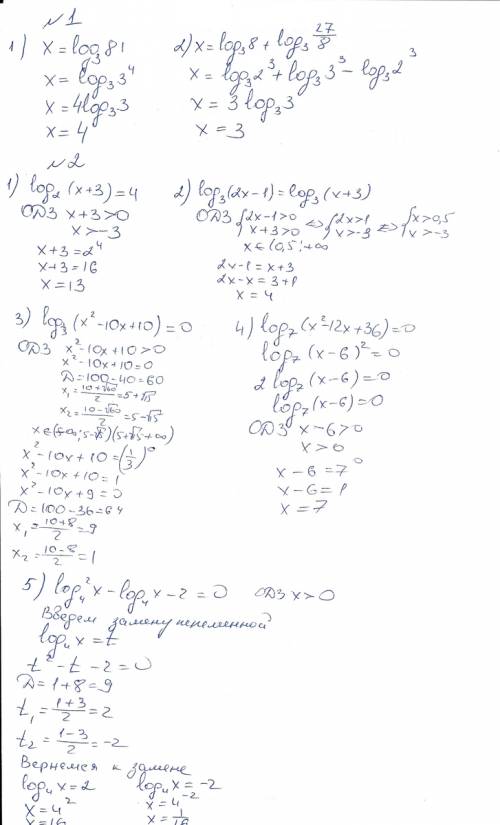 №1
1) x = log₃81
x = log₃3⁴
x = 4log₃3
x = 4
2) x = log₃8 + log₃ 27/8
x = log₃2³ + log₃3³ − log₃2³
x = 3 log₃3
x = 3
№2
1) log₂(x+3) = 4
ОДЗ x+3>0
x>−3
x+3 = 2⁴
x+3 = 16
x = 13
2) log₃(2x−1) = log₃(x+3)
ОДЗ {2x−1>0 ⇔ {2x>1 ⇔ {x>0,5
x+3>0 x>−3 x>−3
x∈(0,5; +∞
2x−1 = x+3
2x−x = 3+1
x = 4
3) log₁/₃(x²−10x+10) = 0
ОДЗ x²−10x+10>0
x²−10x+10=0
D=100−40=60
x₁ = (10+√60)/2 = 5+√15
x₂ = (10−√60)/2 = 5−√15
x∈(−∞; 5−√15)(5+√15 +∞)
x²−10x+10 = (1/3)⁰
x²−10x+10 = 1
x²−10x+9 = 0
D = 100−36 = 64
x₁ = (10+8)/2 = 9
x₂ = (10−8)/2 = 1
4) log₇(x²−12x+36)=0
log₇(x−6)² = 0
2 log₇(x−6) = 0
log₇(x−6) = 0
ОДЗ x−6>0
x>0
x−6 = 7⁰
x−6 = 1
x = 7
5) log₄²x − log₄x − 2 = 0 ОДЗ x>0
Введем замену переменной
log₄x = t
t² − t − 2 = 0
D = 1+8 = 9
t₁ = (1+3)/2 = 2
t₂ = (1−3)/2 = −2
Вернемся к замене
log₄x = 2 log₄x = −2
x = 4² x = 4⁻²
x = 16 x = 1/16